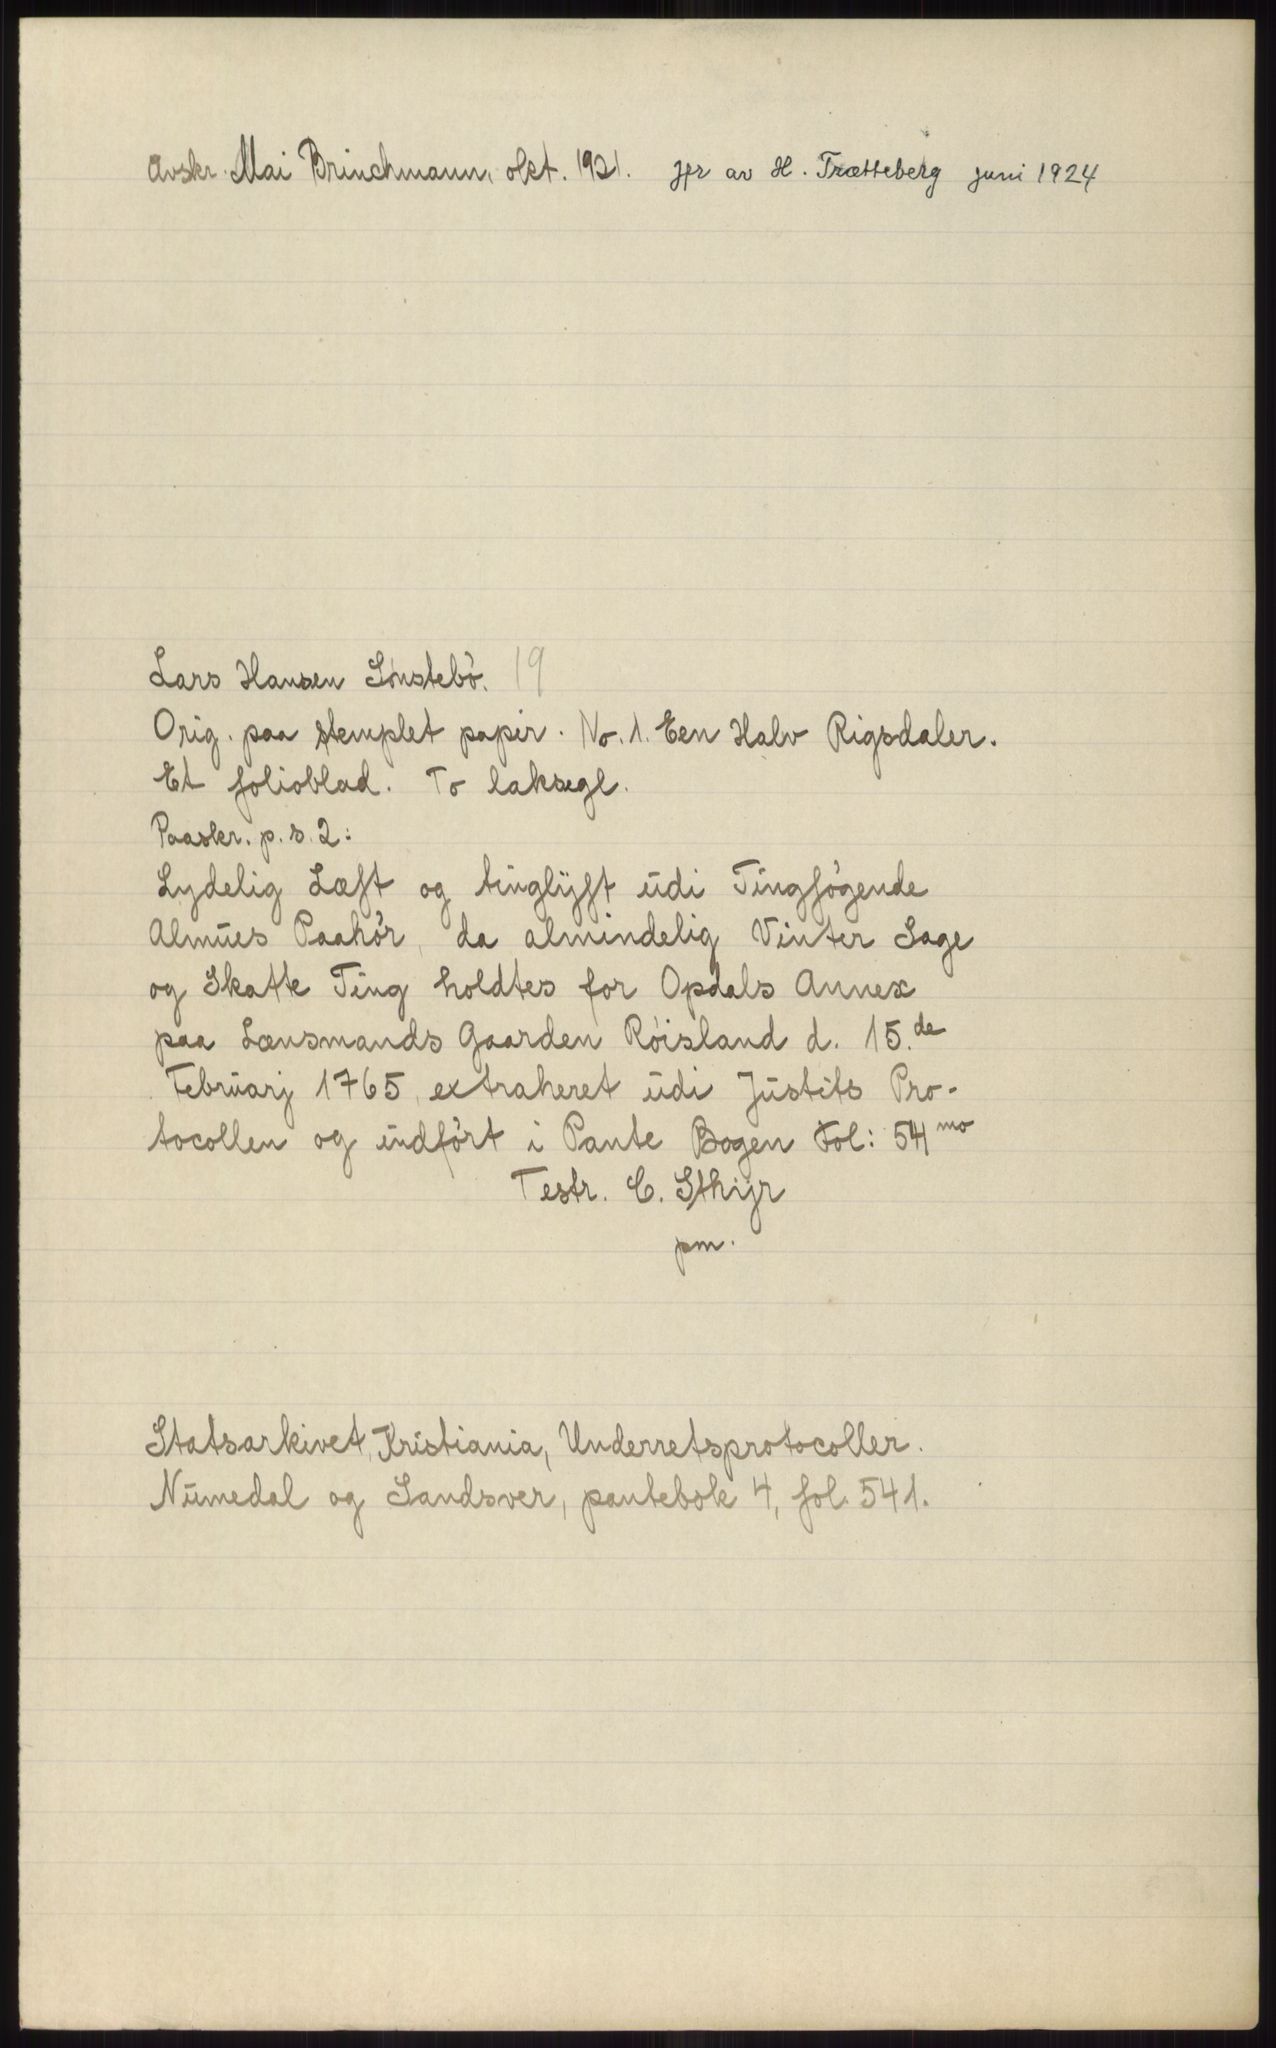 Avskr. Mai Brinchmann, okt. 1921. jfr av H. Trætteberg juni 1924
Lars Hansen Sønstebö. 19
Orig. paa stemplet papir. No. 1. Een Halv Rigsdaler.
Et folioblad. To laksegl.
Paaskr. p. s. 2:
Lydelig Læst og tinglÿst ŭdi Tingsögende
Almŭes Paahör, da almindelig Vinter Sage
og Skatte Ting holdtes for Opdals Annex
paa Lænsmands Gaarden Röisland d. 15.de
Febrŭarj 1765, extraheret ŭdi Jŭstits Pro-
tocollen og indfört i Pante Bogen Fol: 541mo
Testr. C. Sthijr
pm.
Statsarkivet, Kristiania, Underretsprotocoller.
Nŭmedal og Sandsver, pantebok 4, fol. 541.